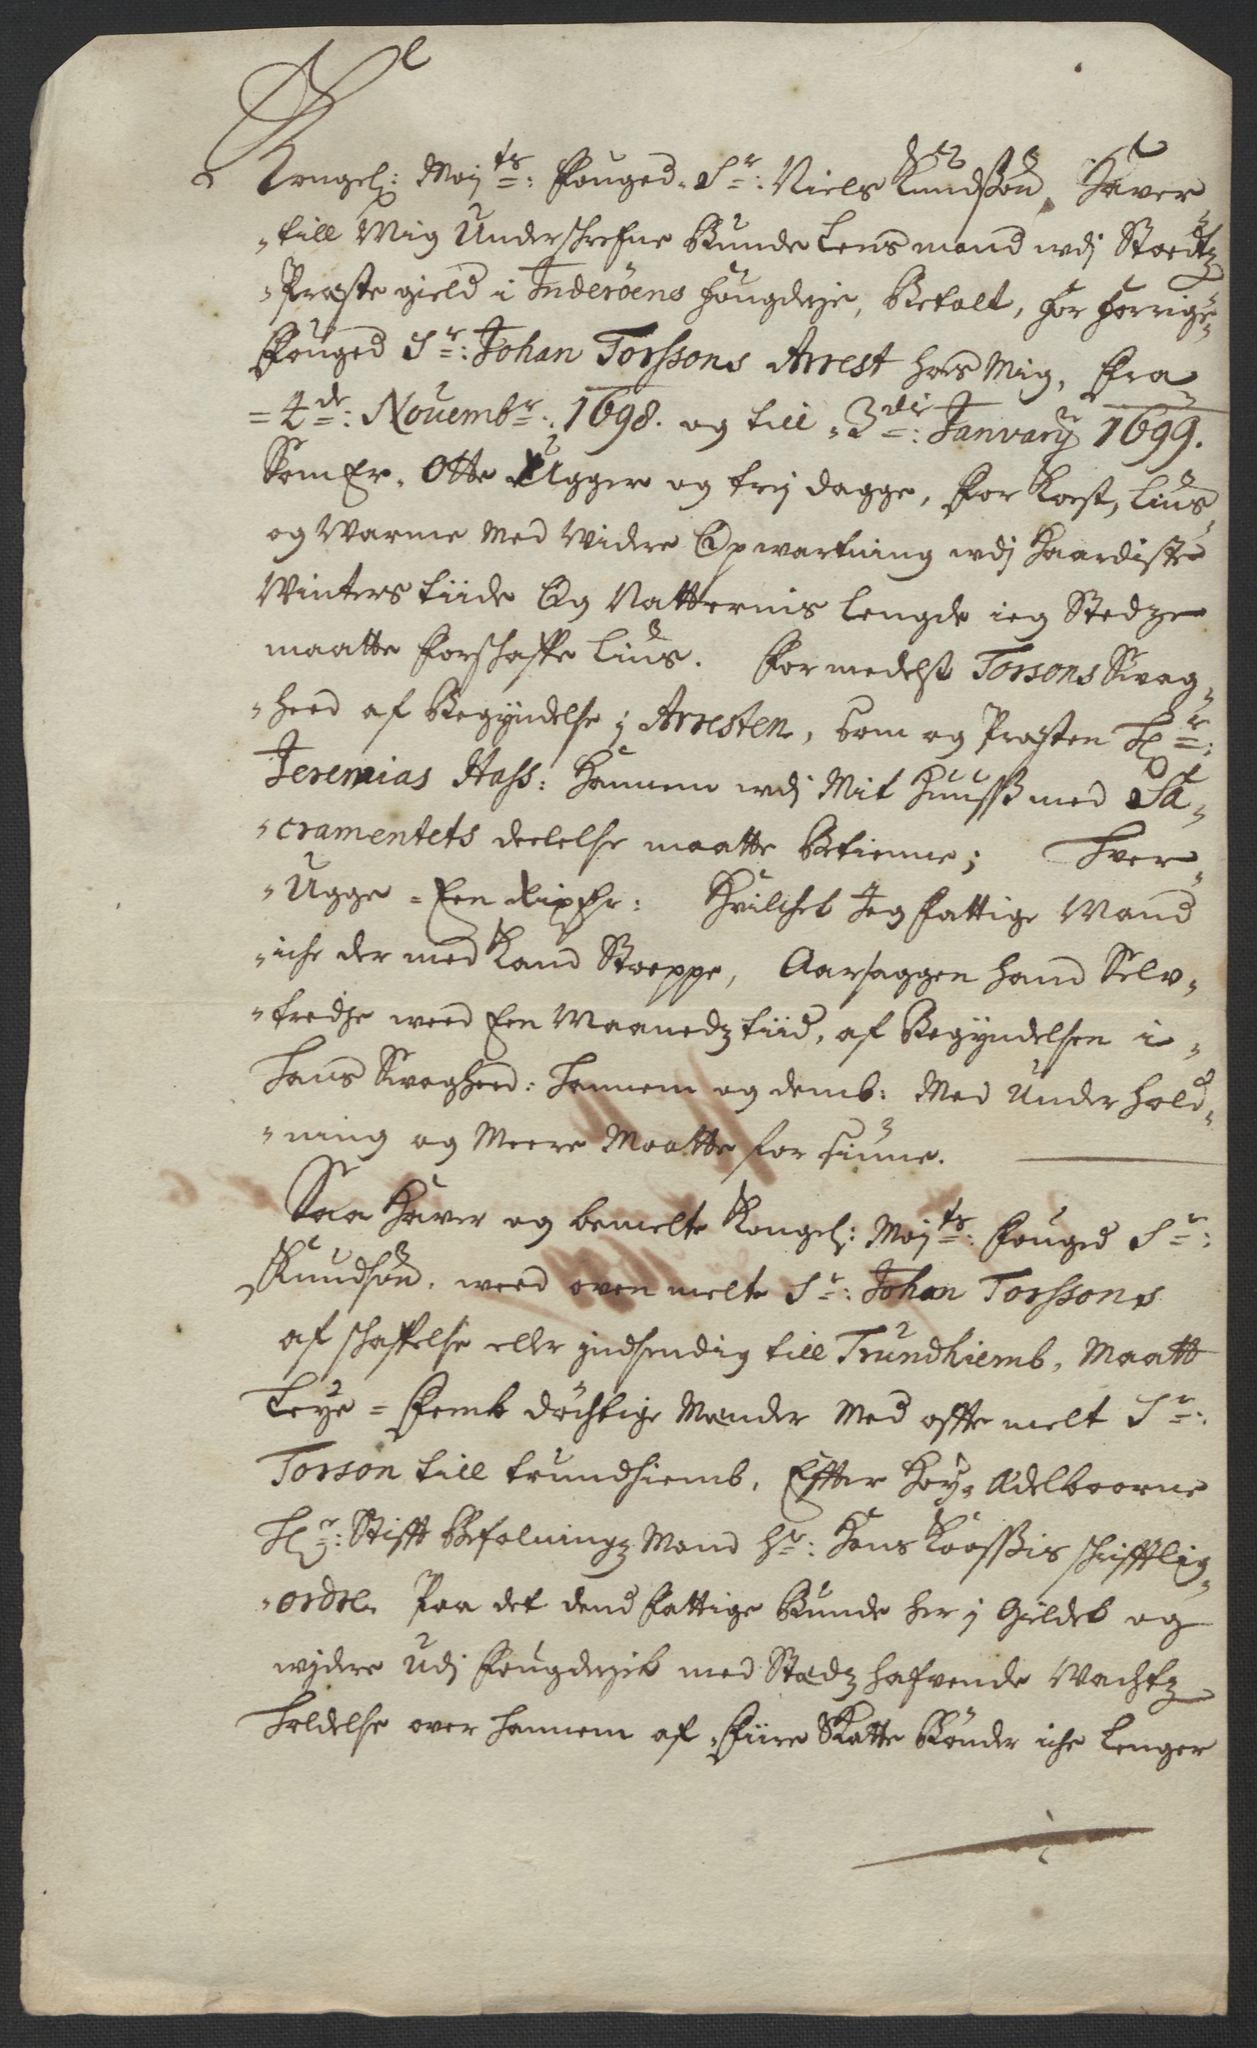 Kongel: May^ts: Fouged. S^r: Niels Knudssøn, Haver
till Mig Underschrefne Bunde Lens mand udj Stoedtz
Præste gield i Inderöens fougderje, Betalt, for forrige
Fouged S^r: Johan Torssons Arrest hoes Mig, Fra
4^de: Novemb^r: 1698. og till 3^die: January 1699.
Som Er, Otte Ugger og trej dagge, For Kost, Lius
og Warme med Widere Opwartning udj Haardiste
Winters tiide Og Natternis lengde ieg Stedze
maatte forschaffe Lius. Formedelst Torsons Swag-
heed af Begyndelse j Arresten, som og Præsten H^r:
Jeremias Hass: hannem udj Mit Huuss med Sa-
cramentets deelelse maatte Betienne; Hver
Ugge = Een Rixdlr: Hvilchet Jeg fattige Mand
iche der med Kand Stoppe, Aarsaggen hand Selv-
tredje weed Een Maanedz tiid, af Begyndelsen i
hans Swagheed: hannem og demb: Med Underhold-
ning og Meere Maatte forsiune.
Saa Haver og bemelte Kongel: May^ts: fouged S^r:
Knudsøn, weed oven melte S^r: Johan Torssons
afschaffelse eller jndsendig till Trundhiemb, Maatt
Leye = Femb döchtige Mænder Med offte melt S^r:
Torson till trundhiemb, Effter Höy Ædelboorne
H^r: Stifft Befalningz Mand H^r: Hans Kaassis schrifftlig
ordre. Paa det dend fattige Bunde her j Gieldet og
wjdere Udj fougderjet med Stædz hafvende Wachtz
holdelse over hannem af Fiire Skatte Bønder iche lenger